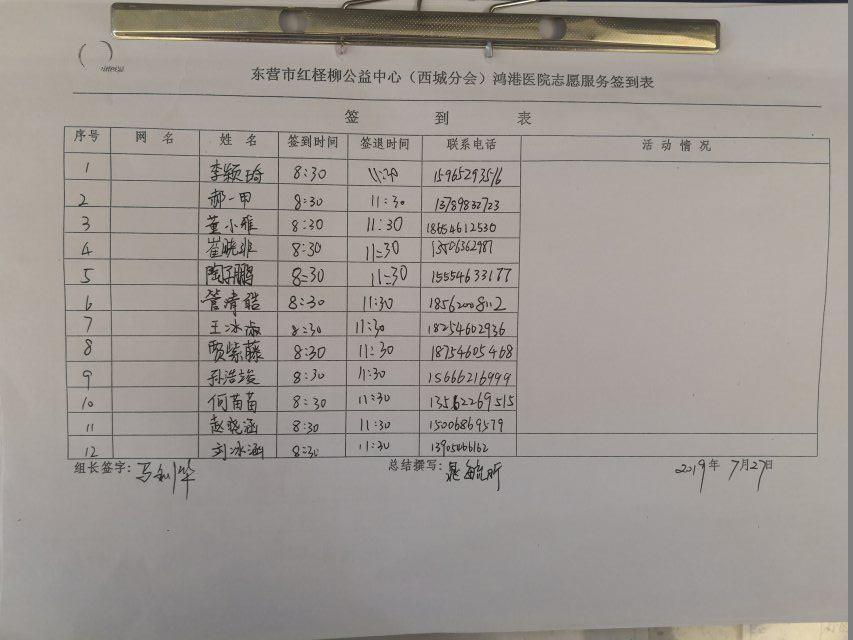 东营市红柽柳公益中心（西城分会）鸿港医院志愿服务签到表
签到表
序号 网名 姓名 签到时间 签退时间 联系电话 活动情况
1 李颖琦 8:30 11:30 15965293516
2 郝一甲 8:30 11:30 13789832723
3 董小雅 8:30 11:30 18654612530
4 崔晓非 8:30 11:30 13506362987
5 陶子鹏 8:30 11:30 15554633177
6 管清皓 8:30 11:30 18562008112
7 王冰淑 8:30 11:30 18254602936
8 贾紫藤 8:30 11:30 18754605468
9 孙浩竣 8:30 11:30 15666216999
10 何苗苗 8:30 11:30 13562269515
11 赵晓涵 8:30 11:30 15006869579
12 刘冰涵 8:30 11:30
组长签字：马利华 总结撰写： 2019年 7月27日